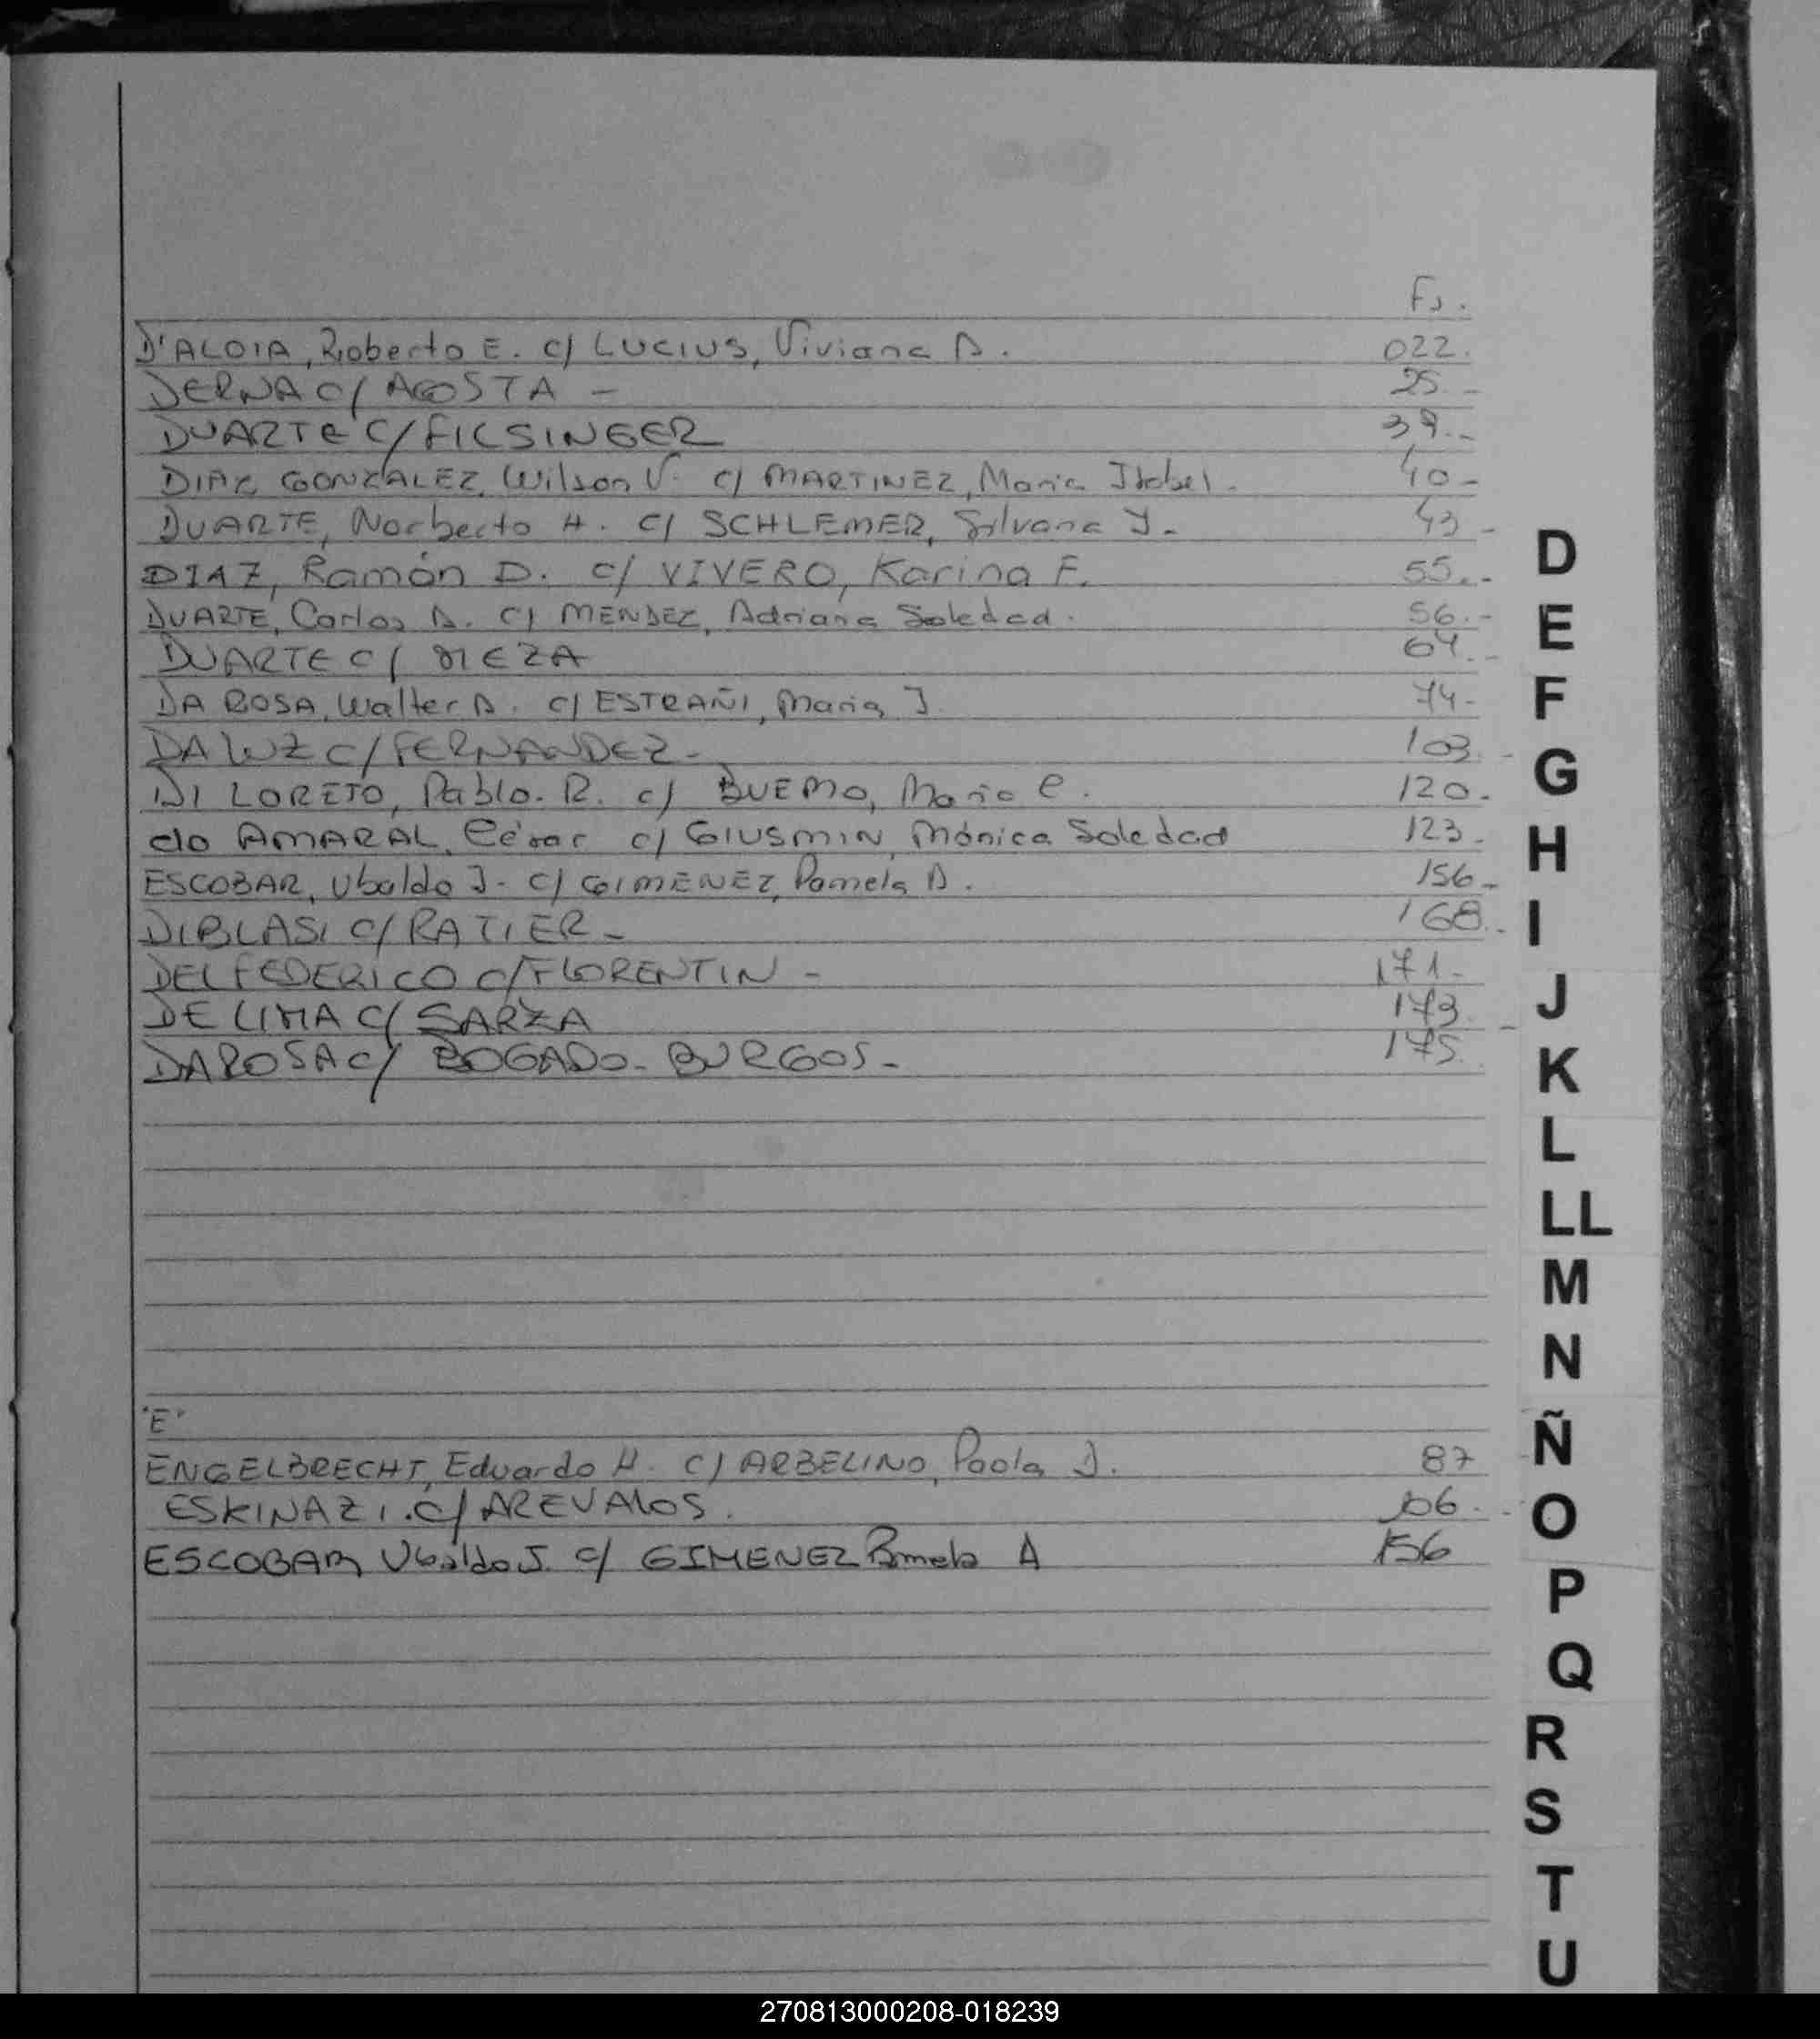 Fs.
D'ALOIA, Roberto E. c/ LUCIUS, Viviana A. 022.
DERNA C/ AGOSTA - 25.-
DUARTE C/ FICSINGER 39.-
DIAZ GONZALEZ, Wilson V. c/ MARTINEZ, Maria Isabel. 40-
DUARTE, Norberto H. C/ SCHLEMER, Silvana Y.- 43-
DIAZ, Ramón D. c/ VIVERO, Karina F. 55.-
DUARTE, Carlos A. C/ MENDEZ, Adriana Soledad. 56.-
DUARTE C/ MEZA 64.-
DA ROSA, Walter A. c/ ESTRAÑI, Maria J. 74-
DA LUZ C/ FERNANDEZ- 103.-
DI LORETO, Pablo. R. c/ BUEMO, Maria C. 120.
do AMARAL, César c/ GIUSMIN, Mónica Soledad 123.
ESCOBAR, Ubaldo J- C/ GIMENEZ, Pamela A. 156-
DIBLASI C/ RATIER- 168.-
DELFEDERICO C/ FLORENTIN- 171-
DE LIMA C/ SARZA 173.-
DAROSA C/ BOGADO- BURGOS- 175.
"E"
ENGELBRECHT, Eduardo H. C/ ARBELINO, Paola J. 87
ESKINAZI. C/ AREVALOS. 106.-
ESCOBAR Ubaldo J. c/ GIMENEZ Pamela A 156
D
E
F
G
H
I
J
K
L
LL
M
N
Ñ
O
P
Q
R
S
T
U
270813000208-018239